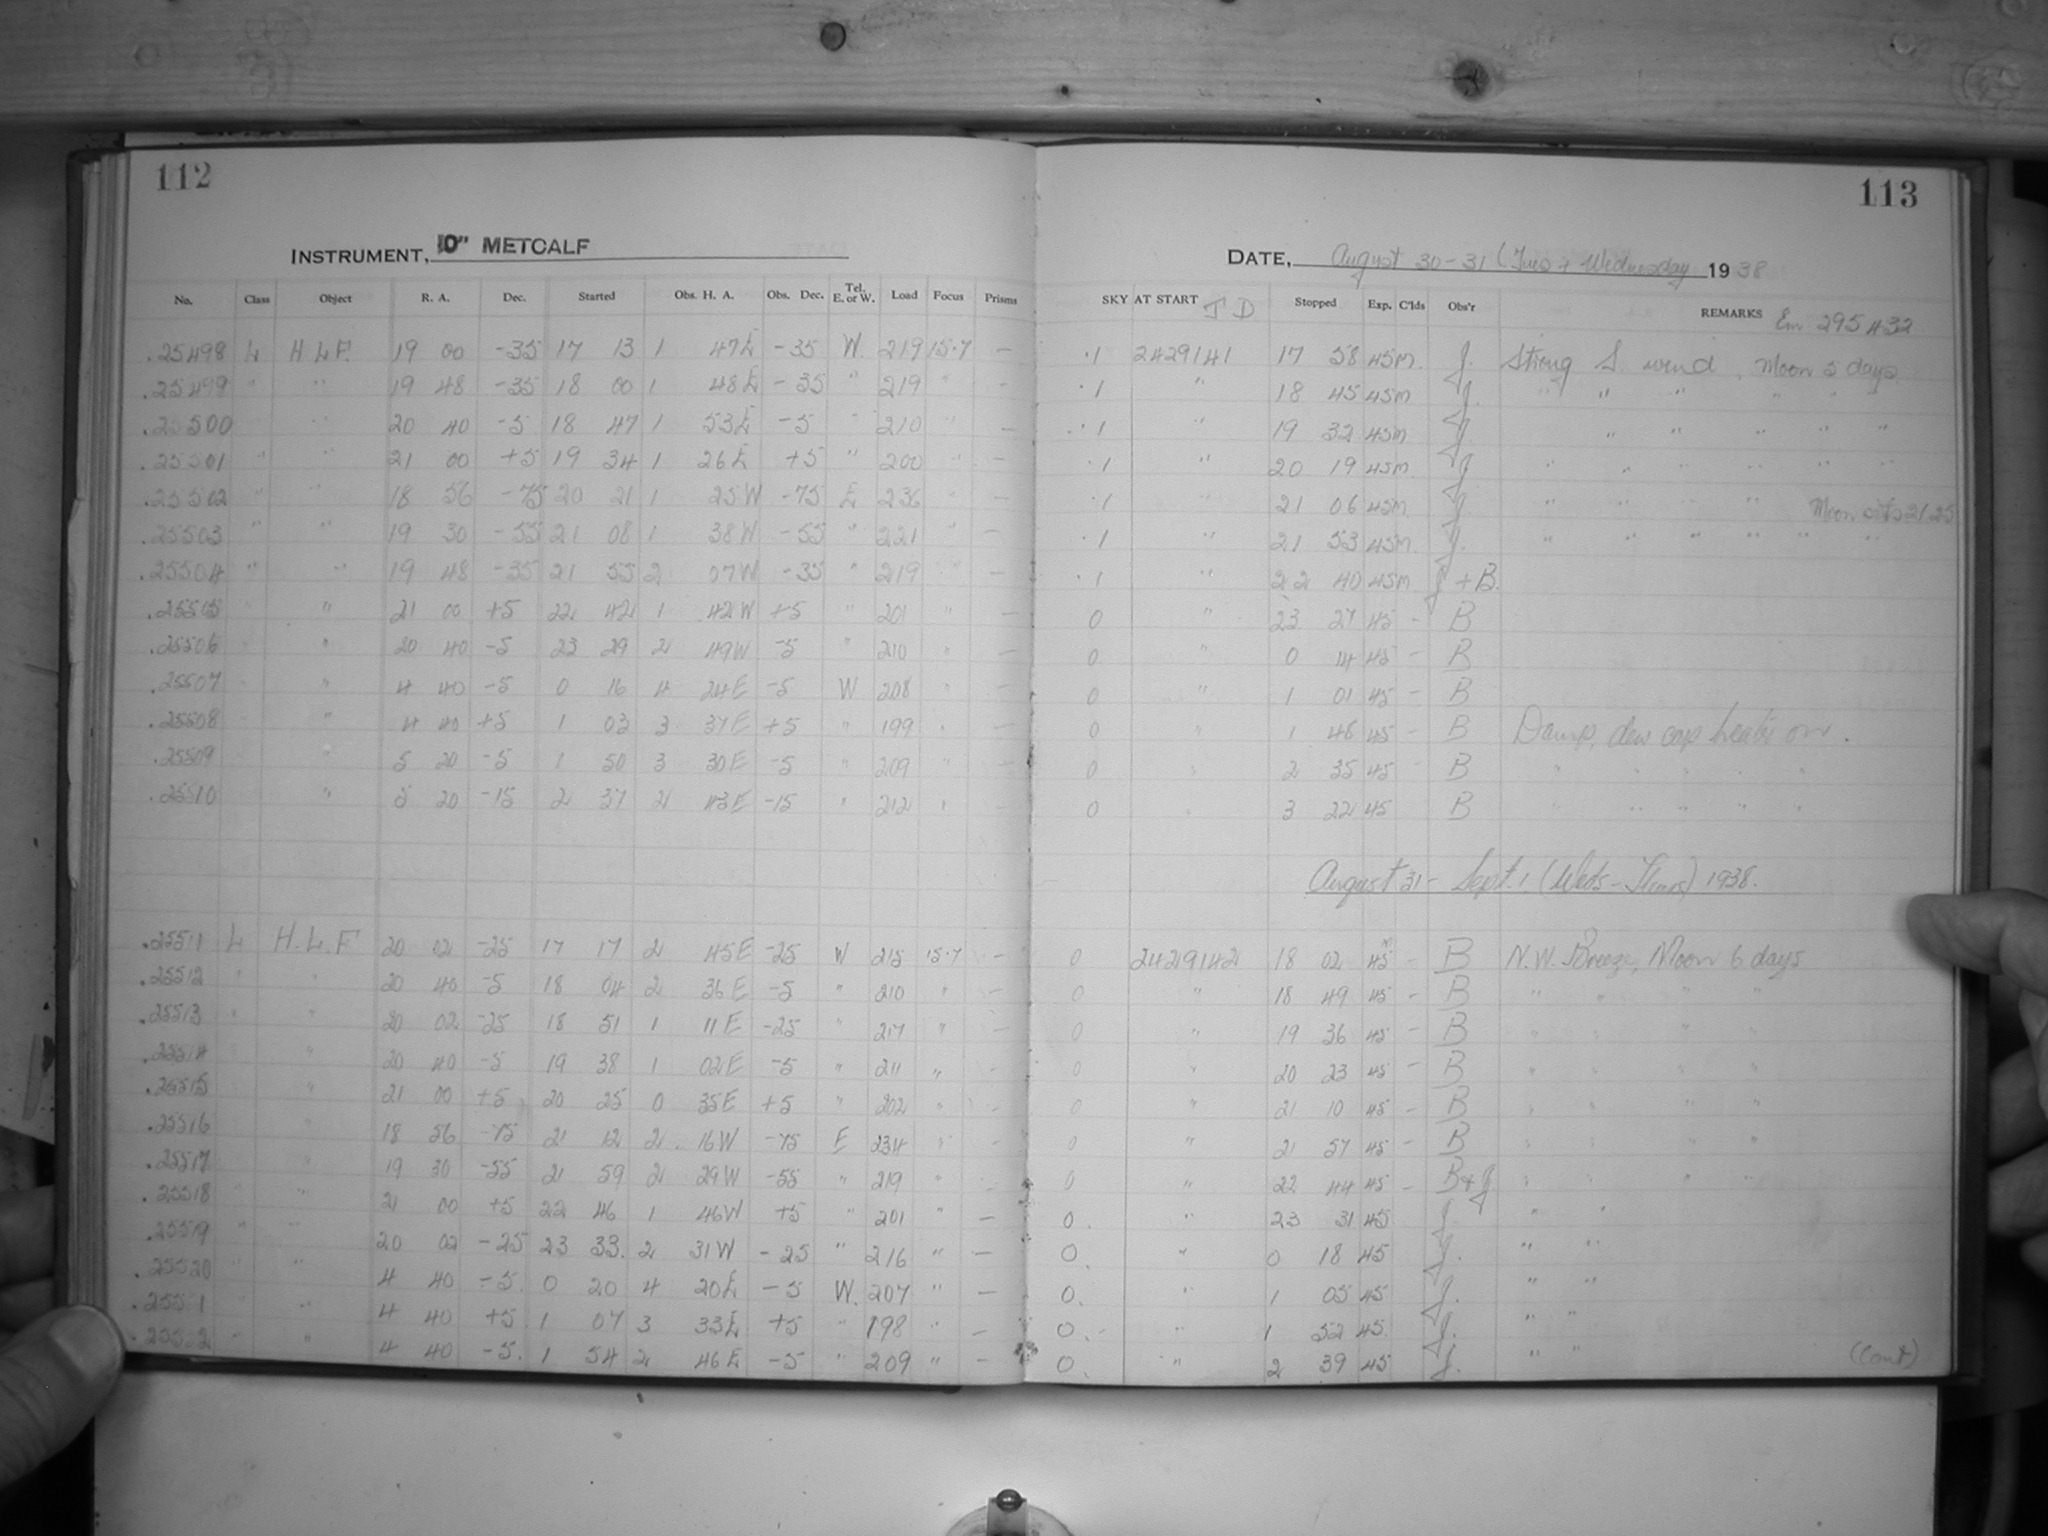 112
INSTRUMENT, 10" METCALF
No. Class Object R. A. Dec. Started Obs. H. A. Obs. Dec. Tel. E. or W. Load Focus Prisms
.25498 L H L F. 19 00 -35 17 13 1 47E -35 W. 219 15.7 —
.25499 " " 19 48 -35 18 00 1 48E -35 " 219 " —
.25500 " 20 40 -5 18 47 1 53E -5 " 210 " —
.25501 " " 21 00 +5 19 34 1 26E +5 " 200 " —
.25502 " " 18 56 -75 20 21 1 25W -75 E 236 " —
.25503 " " 19 30 -55 21 08 1 38W -55 " 221 " —
.25504 " " 19 48 -35 21 55 2 07W -35 " 219 " —
.25505 " 21 00 +5 22 42 1 42W +5 " 201 " —
.25506 " 20 40 -5 23 29 2 49W -5 " 210 " —
.25507 " 4 40 -5 0 16 4 24E -5 W 208 " —
.25508 " 4 40 +5 1 03 3 37E +5 " 199 " —
.25509 " 5 20 -5 1 50 3 30E -5 " 209 " —
.25510 " 5 20 -15 2 37 2 43E -15 " 212 " —
.25511 L H.L.F 20 02 -25 17 17 2 45E -25 W 215 15.7 —
.25512 " " 20 40 -5 18 04 2 36E -5 " 210 " —
.25513 " " 20 02 -25 18 51 1 11E -25 " 217 " —
.25514 " 20 40 -5 19 38 1 02E -5 " 211 " —
.25515 " 21 00 +5 20 25 0 35E +5 " 202 " —
.25516 " 18 56 -75 21 12 2 16W -75 E 234 " —
.25517 " 19 30 -55 21 59 2 29W -55 " 219 " —
.25518 " " 21 00 +5 22 46 1 46W +5 " 201 " —
.25519 " " 20 02 -25 23 33. 2 31W -25 " 216 " —
.25520 " " 4 40 -5. 0 20 4 20E -5 W. 207 " —
" " 4 40 +5 1 07 3 33E +5 " 198 " —
" " 4 40 -5. 1 54 2 46E -5 " 209 " —
113
DATE, August 30-31 (Tues + Wednesday 1938
SKY AT START J D Stopped Exp. C'lds Obs'r REMARKS
.1 2429141 17 58 45m. J. Strong S. wind, Moon 5 days
.1 " 18 45 45m J. " " " " " "
.1 " 19 32 45m J " " " " "
.1 " 20 19 45m. J " " " " " "
.1 " 21 06 45m. J. " " " " Moon sets 21 25
.1 " 21 53 45m. J. " " " " " "
.1 " 22 40 45m J + B.
0 " 23 27 45 - B
0 " 0 14 45 - B
0 " 1 01 45 - B
0 " 1 48 45 - B Damp, dew cap heater on.
0 " 2 35 45 - B " " " " "
0 " 3 22 45 B " " " " "
August 31 - Sept. 1 (Weds - Thurs) 1938.
0 2429142 18 02 45 - B N.W. Breeze, Moon 6 days
0 " 18 49 45 - B " " " "
0 " 19 36 45 - B " " " "
0 " 20 23 45 - B " " " "
0 " 21 10 45 - B " " " "
0 " 21 57 45 - B " " " "
0 " 22 44 45 - B+J " " " "
0. " 23 31 45 J " "
0. " 0 18 45 J. " "
0. " 1 05 45 J. " "
0. " 1 52 45. J. " "
0. " 2 39 45 J. " "
(Cont)